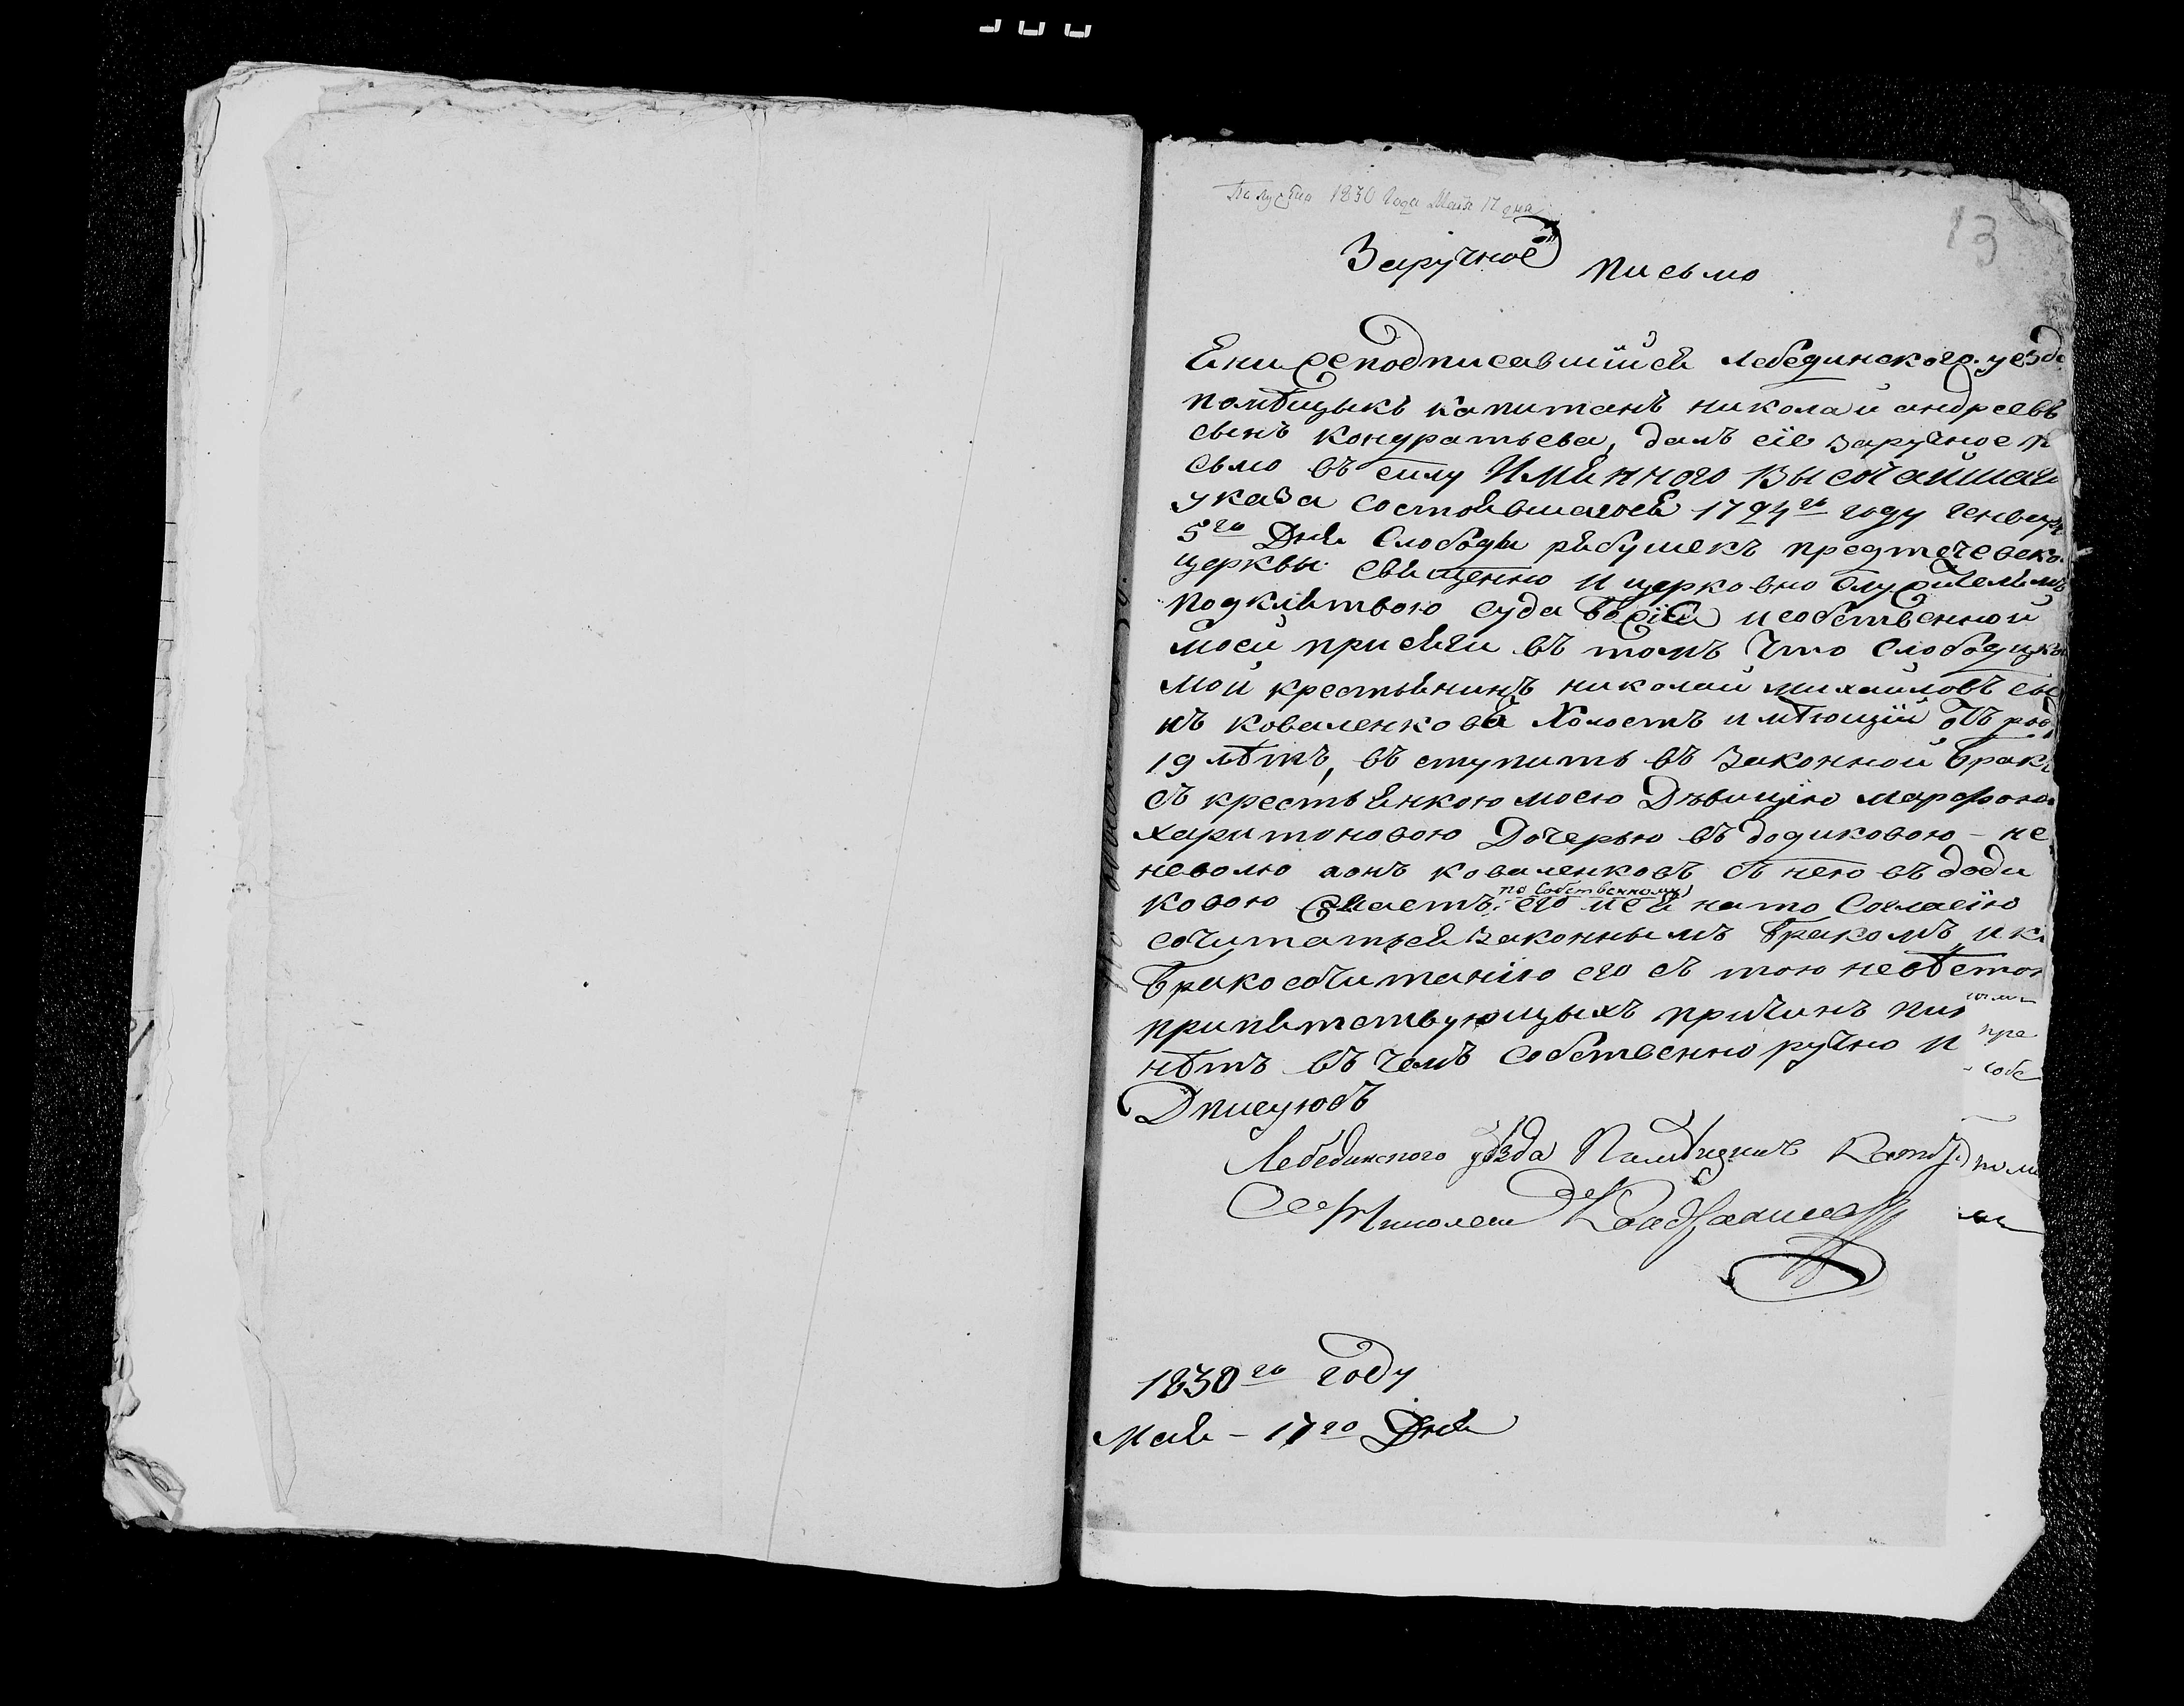 Получено 1830 года Мая 17 дня
13
Заручное письмо
Я нижеподписавшійся лебединского уезда
помѣщыкъ капитанъ николай андреевъ
сынъ кондратьева, далъ сіе заручное пи
сьмо въ силу Имяннаго Высочайшаго
указа состоявшагося 1724го году генваря
5го Дня Слободы рябушекъ предтечевской
церквы священно и церковно служителямъ
подклятвою суда божія и собственной
моей присяги въ томъ что Слободы
мой крестьянинъ николай михайловъ сы
нъ коваленкова Холостъ имѣющій отъ роду
19 лѣтъ, въступить въ законной бракъ
съ крестьянкою моею Дѣвицею марфою
харитоновою Дочерью въдодиковою - не
неволю аонъ коваленковъ съ нею въдоди
ковою желаетъ по собственному его и ея на то Согласію
сочитаться законнымъ бракомъ, и къ
бракосочитанію его съ тою невѣстою
припятствующыхъ причинъ ника
нѣтъ въ чемъ собственно ручно и
Дписуюсь
Лебединского уѣзда Памѣщикъ
Николай Кондратьевъ
1830го году
Мая - 17го Дня